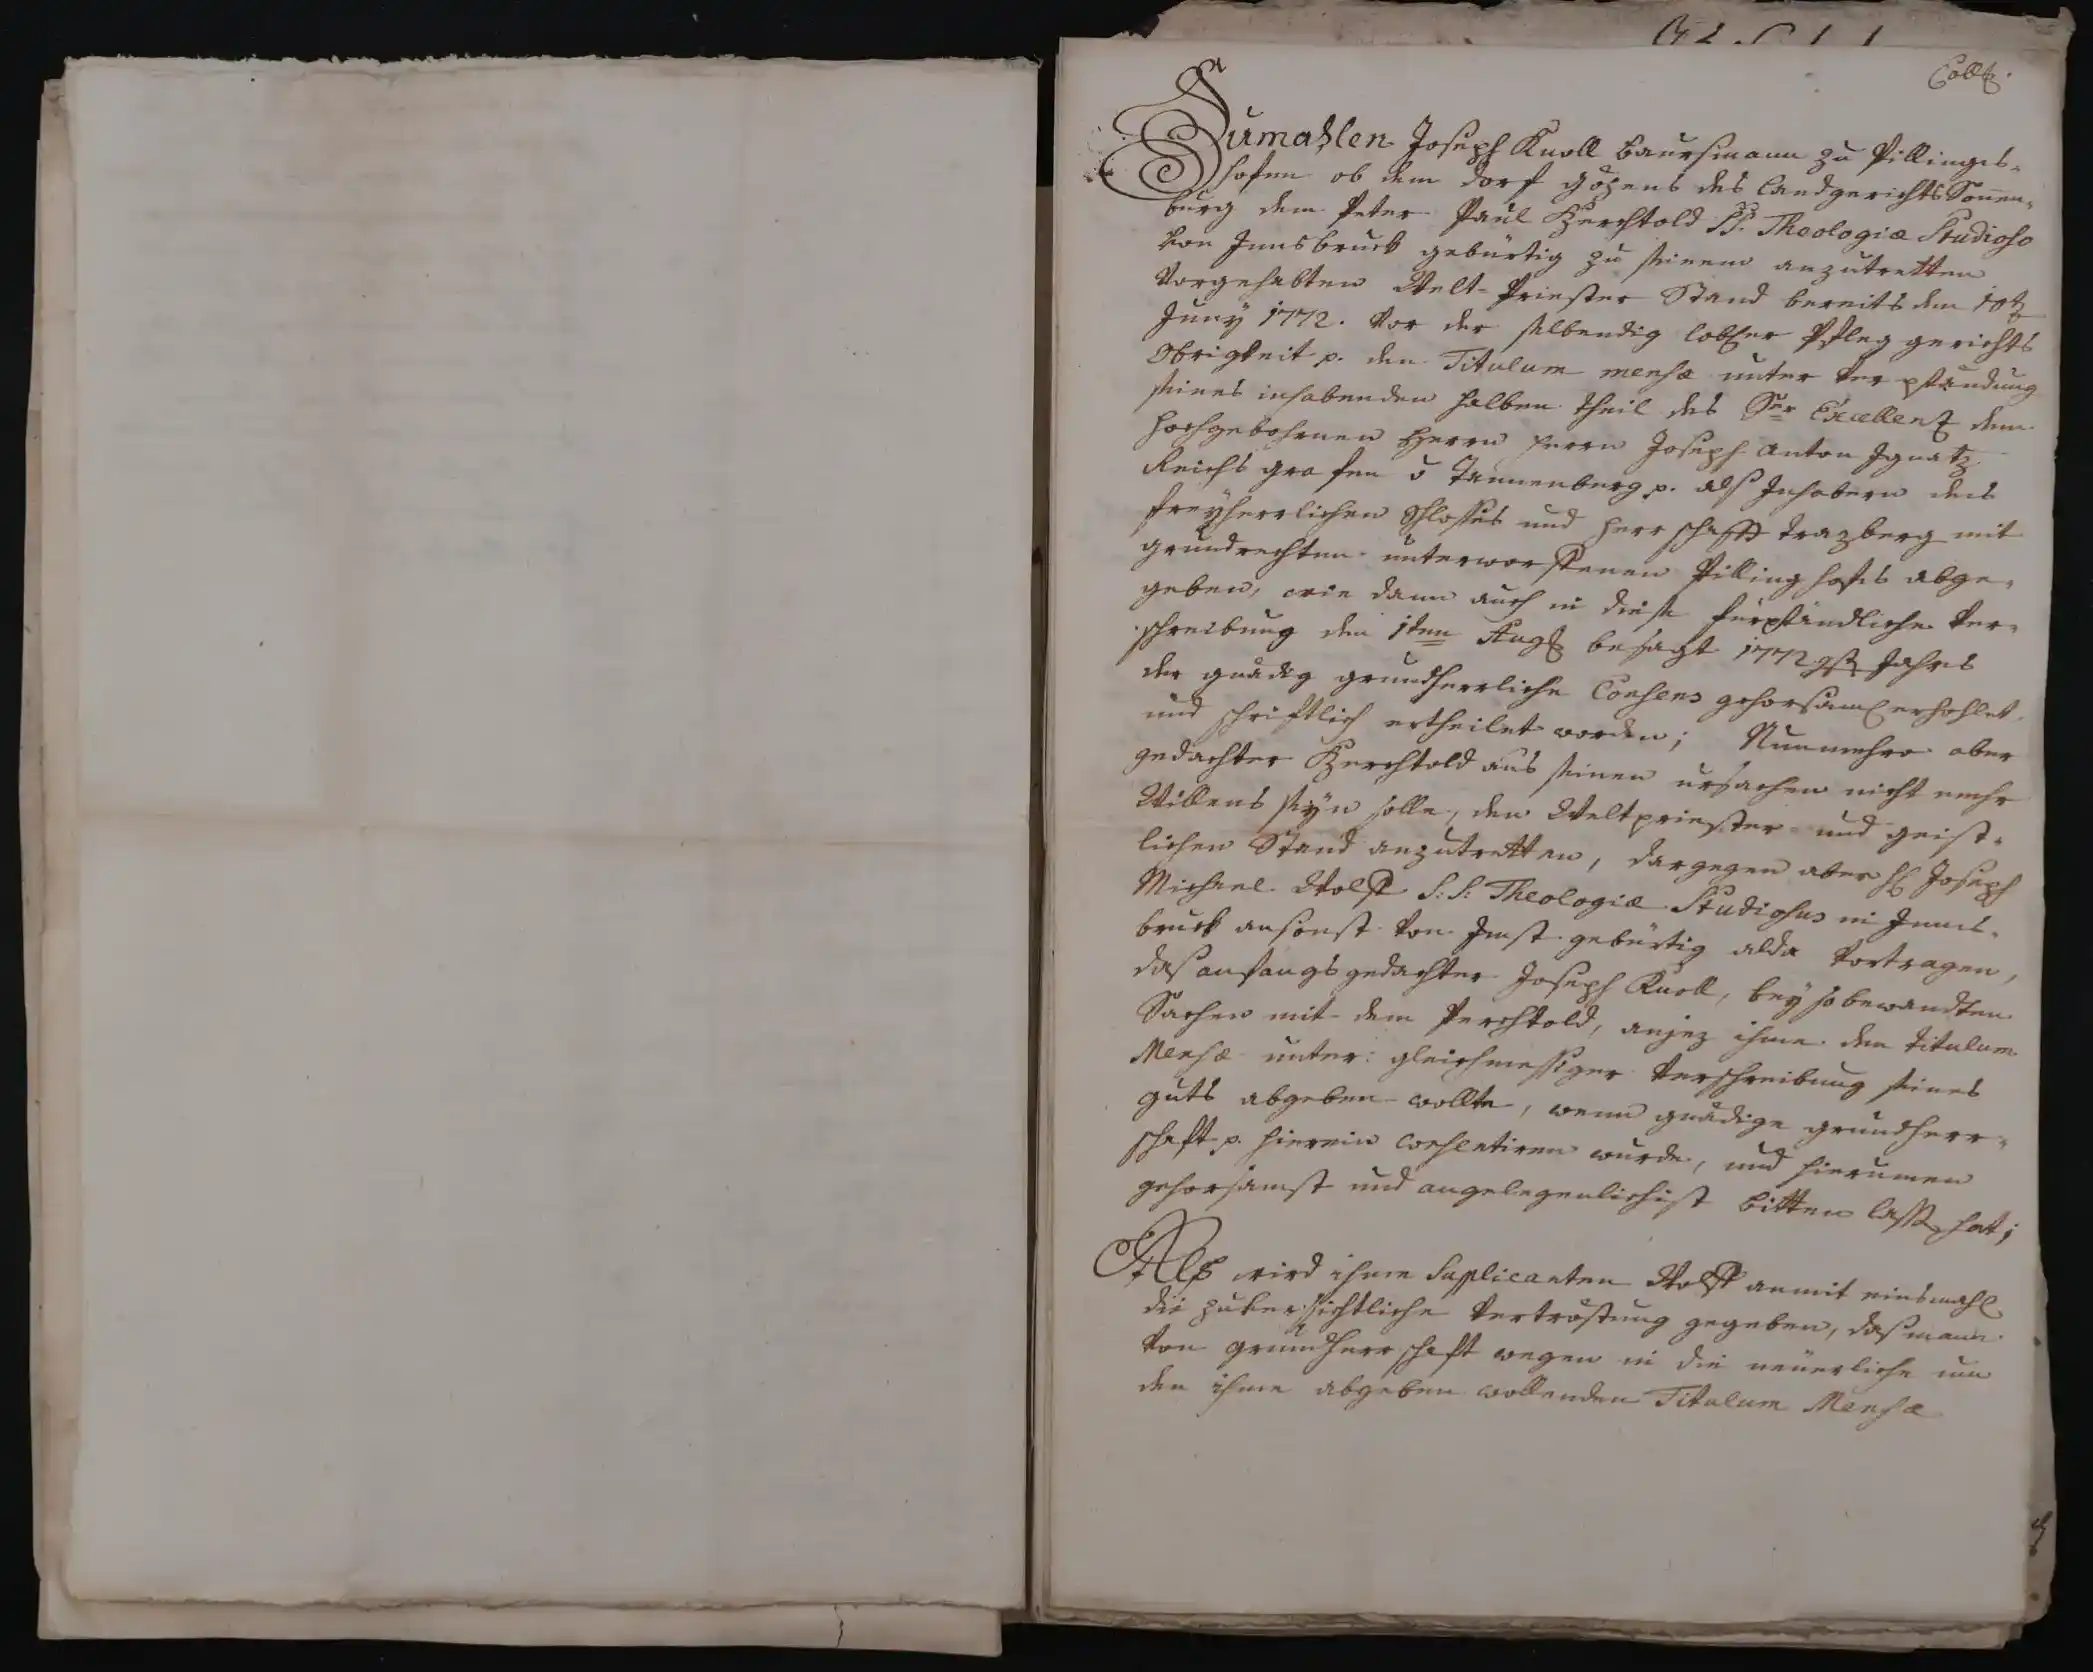 Zumahlen Joseph Knoll Baursmann zu Pillings-
hofen ob dem Dorf Gözens des Landgerichts Sonen-
burg dem Peter Paul Perchtold SS. Theologiæ Studioso
von Innsbruck gebürtig zu seinem anzutretten
vorgehabten Welt-Priester Stand bereits den 10t
Juny 1772. vor der selbendig lobl.er Pfleg gerichts
Obrigkeit p. den Titulum mensæ unter verpfändung
seines inhabenden halben theil des Sr Excellenz dem
hochgebohrnen Herrn Herrn Joseph Anton Ignatz
Reichs grafen v Tannenberg p. als Inhabern des
freyherrlichen Schlosses und herrschafft Trazberg mit
grundrechten unterworffenen Pilling hofs abge-
geben, wie dann auch in diese fürpfändliche ver-
schreibung den 1ten Aug besagt 1772 Jahrs
der gnädig grundherrliche Consens gehorsaml erhohlet,
und schriftlich ertheilet worden; Nunmehro aber
gedachter Perchtold aus seinen ursachen nicht mehr
Willens seyn solle, den Weltpriester- und geist-
lichen Stand anzutretten, dargegen aber H Joseph
Michael Wolff S: S: Theologiæ Studiosus in Inns-
bruck ansonst von Imst gebürtig alda vortragen,
das anfangs gedachter Joseph Knoll, bey so bewandten
Sachen mit dem Perchtold, anjez ihme den titulum
Mensæ unter gleichmessiger verschreibung seines
guts abgeben wollte, wenn gnädige grundherr-
schaft p. hierein consentiren wurde, und hierumen
gehorsamst und angelegenlichist bitten lassen hat;
Als wird ihme Suplicanten Wolff anmit einsmahl
die zuversichtliche vertröstung gegeben, das mann
von grundherrschaft wegen in die neuerliche um
den ihme abgeben wollenden Titulum Mensæ